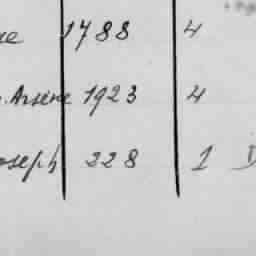 1788 4
Arsène 1923 4
oseph 228 1